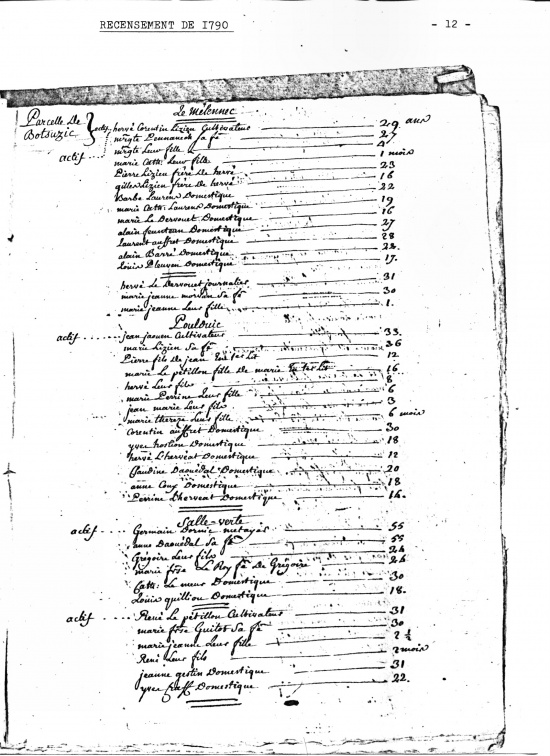 RECENSEMENT DE 1790 - 12 -
Le Mélennec
Parcelle De
Botsuzic
actif hervé Corentin Lizien Cultivateur 29 ans
mrgte Pennanech sa fê 27
mrgte Leur fille 4
actif marie Cath: Leur fille 1 mois
Pierre Lizien frère De hervé 23
gilles Lizien frère De hervé 16
Barbe Laurens Domestique 22
marie Cath: Laurens Domestique 19
marie Le Dervouet Domestique 16
alain Domestique 27
Laurent auffret Domestique 28
alain Barré Domestique 22.
Louis Pleuven Domestique 17.
hervé Le Dervouet journalier 31
marie jeanne morvan Sa fê 30
marie jeanne Leur fille 1.
Poulouic
actif jean jaouen Cultivateur 33.
marie Lizien Sa fê 36
Pierre fils De jean 12
marie Le pétillon fille De marie 16
hervé Leur fils 8
marie Perrine Leur fille 6
jean marie Leur fils 3
marie thereze Leur fille 6 mois
Corentin auffret Domestique 30
yves hostiou Domestique 18
hervé L'hervéat Domestique 12
Claudine Daouédal Domestique 20
anne Coux Domestique 18
Perrine L'horveat Domestique 14.
Salle-verte
actif Germain Dornic metayer 55
anne Daouédal Sa fê 55
Grégoire Leur fils 24
marie frse Le Roy fê De Grégoire 26
Cath: Le meur Domestique 30
Louis quilliou Domestique 18.
actif René Le pétillon Cultivateur 31
marie frse Guitot Sa fê 30
marie jeanne Leur fille 2 ½
René Leur fils 2 mois
jeanne gestin Domestique 31
yves Domestique 22.